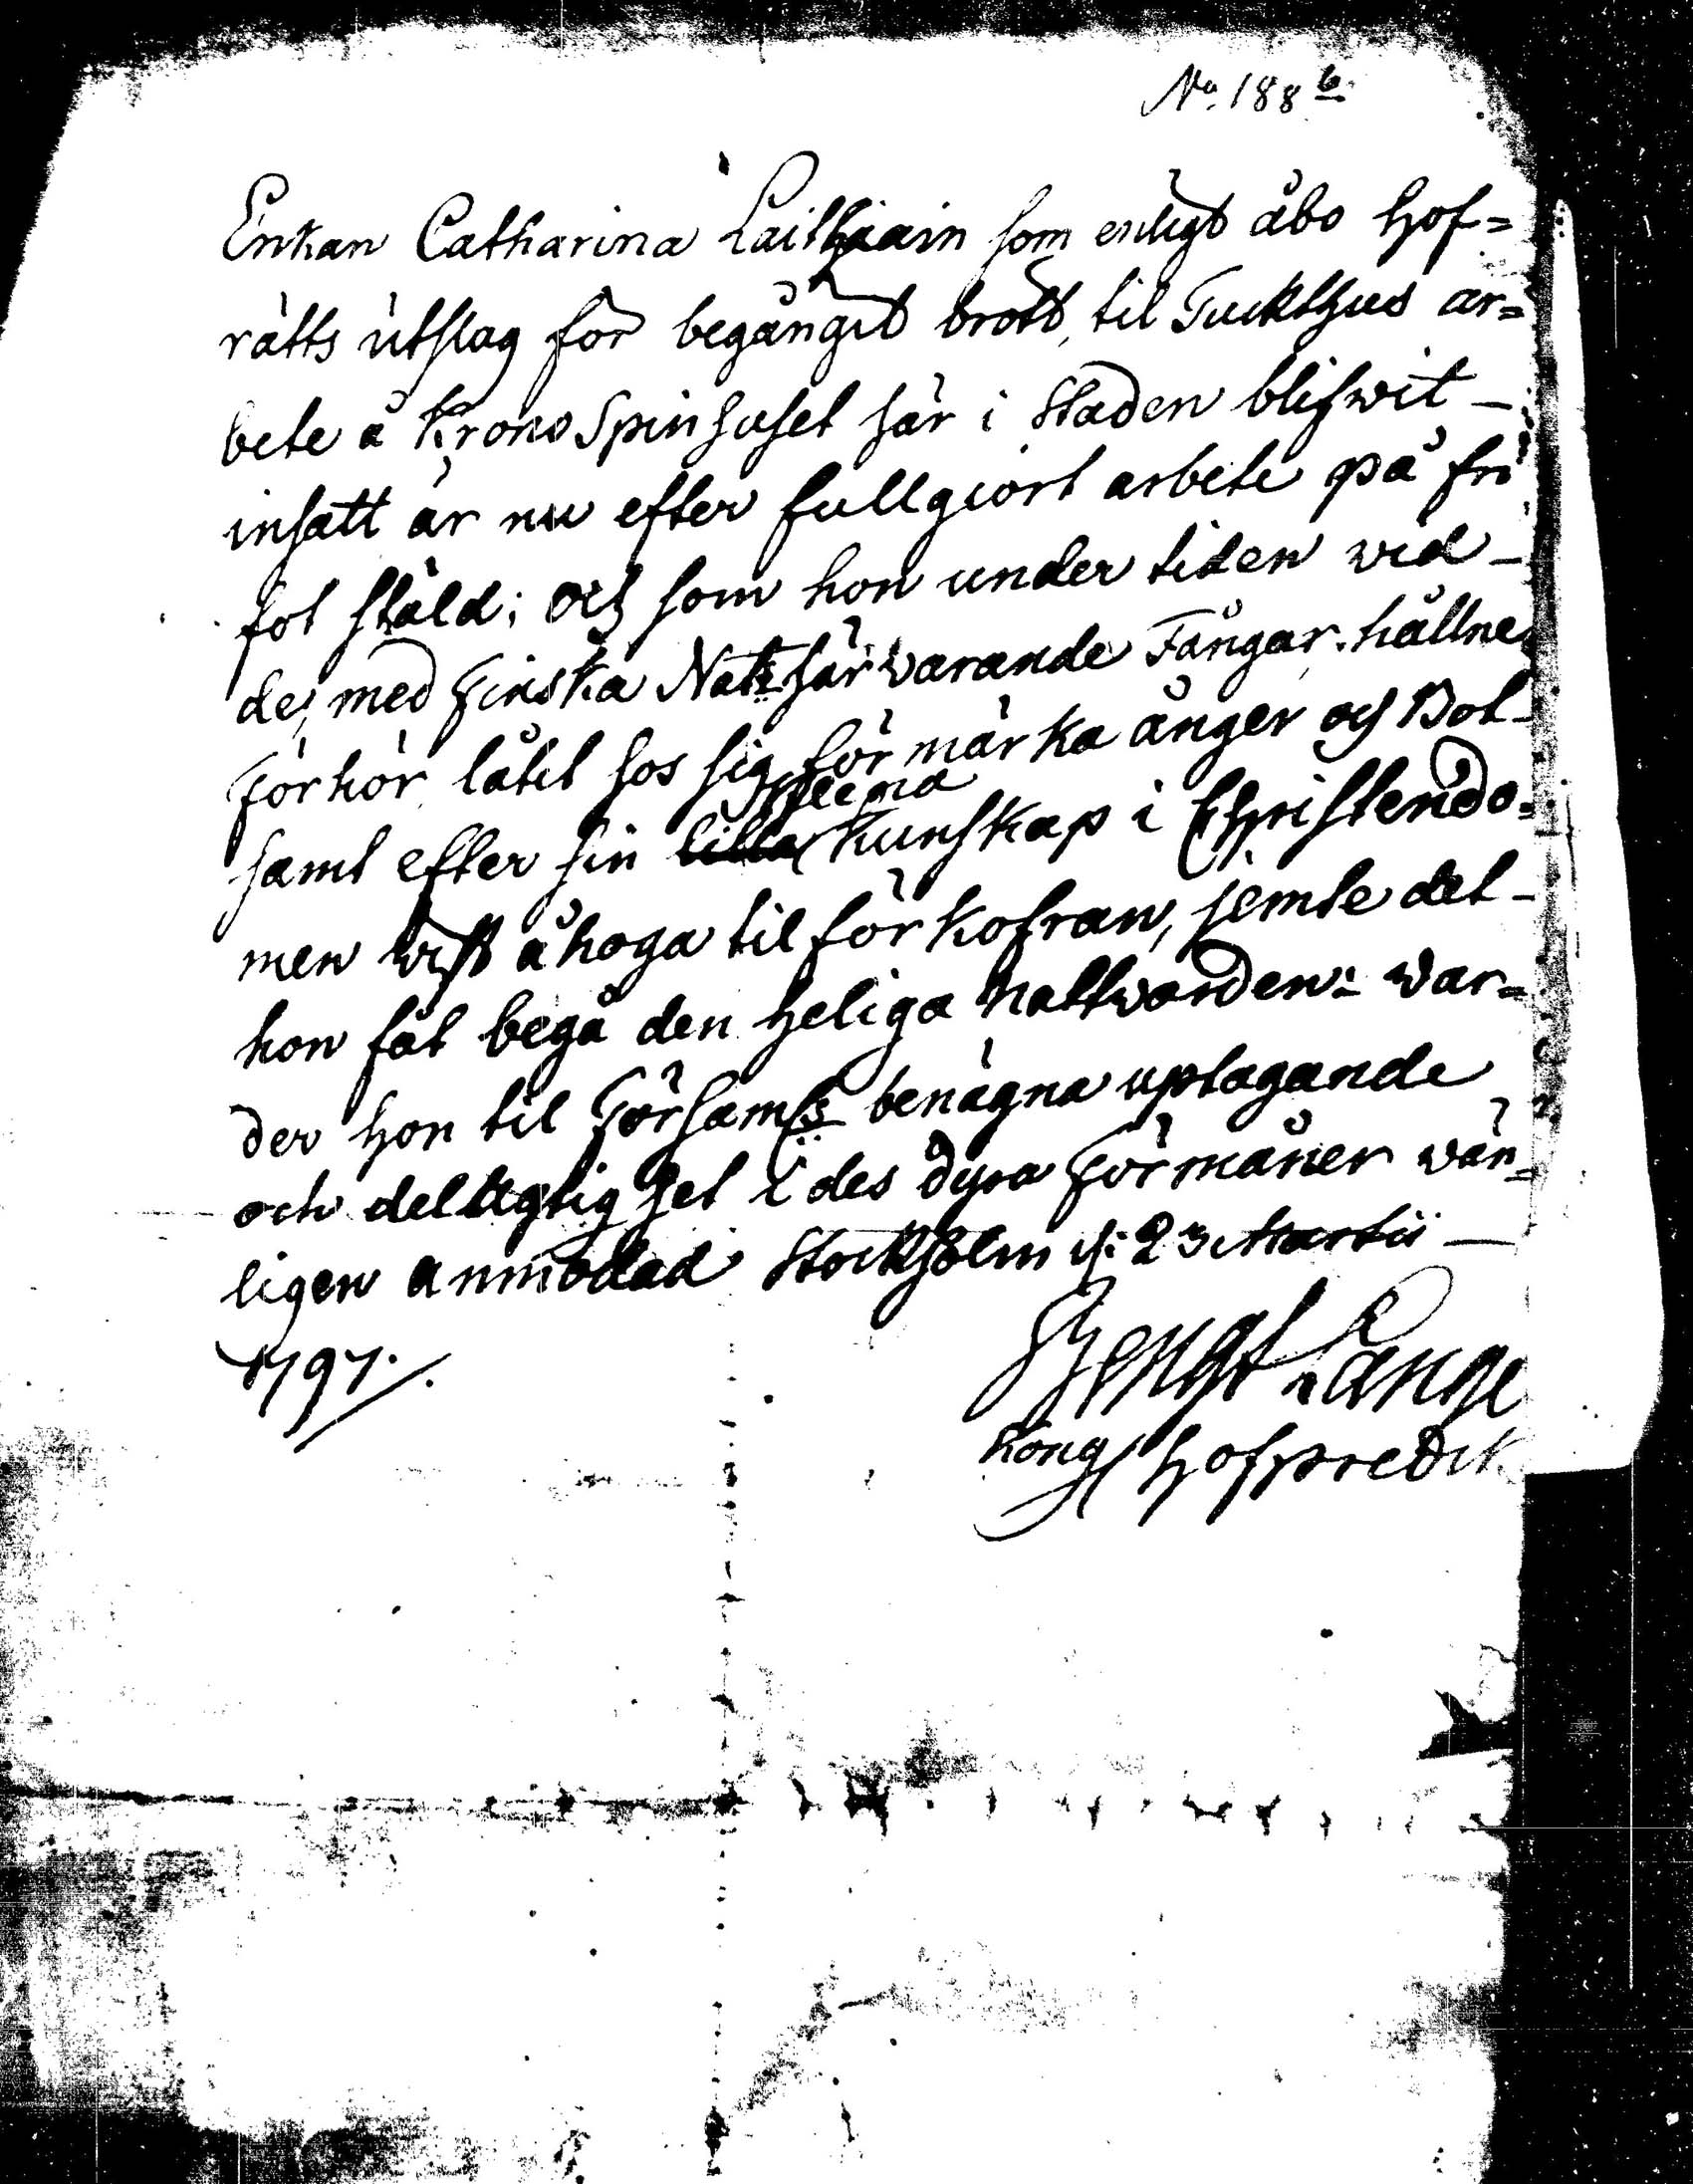 No. 188 b
Enkan Catharina som enligt åbo Hof=
rätts utslag för begånget brott, til Tuckthus ar=
bete å Krono Spinhuset här i Staden blifwit
insatt är nu efter fullgiort arbete på fri
fot stäld; och som hon under tiden wid
de, med Finska Nat: här warande Fångar hållne
Förhör låtit hos sig förmärka ånger och Bot
samt efter sin kunskap i Christendo-
men wist åhoga til förkofran, jemte det
hon fåt begå den Heliga Nattwarden: war=
der hon til Förhaml:s benägna uptagande
och delagtighet i des dyra Förmåner wän=
ligen anmodad Stockholm d: 23 Martii
1797.
Bengt Lange
Kongl Hofpredik